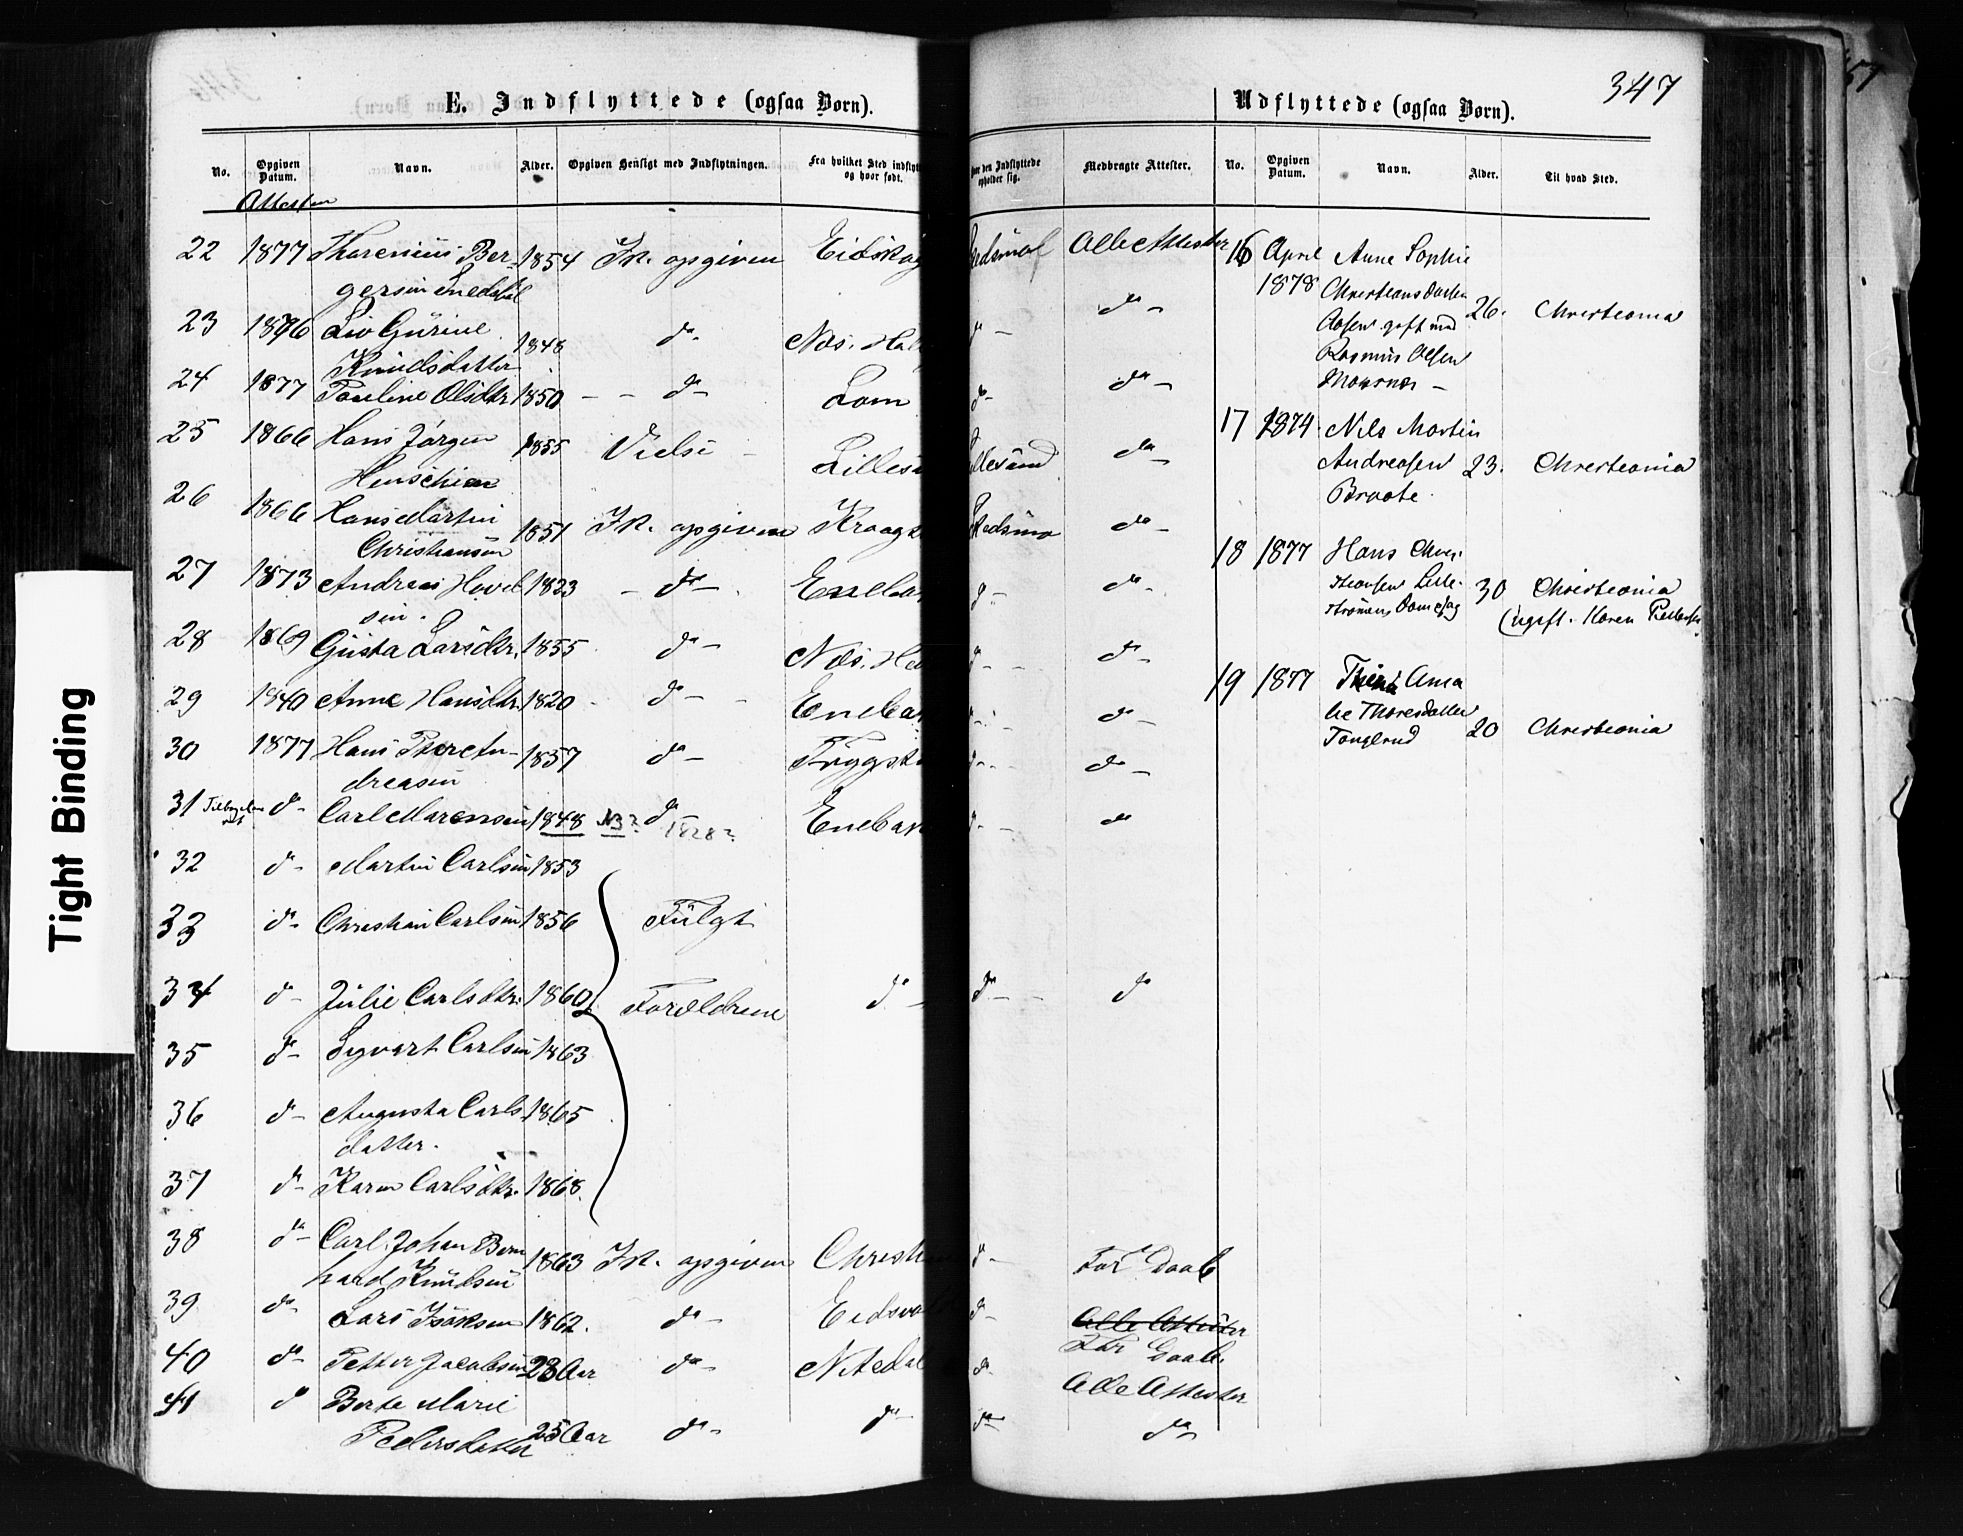 Tight Binding
347
E. Indflyttede (ogsaa Børn).
No. Opgiven Datum. Navn. Alder. Opgiven Hensigt med Indflytningen. Fra hvilket Sted indflyt og hvor født.
Attesten
22 1877 Thorenius Ber- 1854 Ik. opgiven Eidskog
gersen
23 1876 Liv Gurine 1848 do Næs. H
Knudsdatter
24 1877 Pauline Olsdtr. 1850 - - do - Lom
25 1866 Hans Jørgen 1855 Lilles
26 1866 Hans Martin 1851 Ik. opgiven Kraag
Christiansen
27 1873 Andreas Hovel 1833 - do - Eneba
sen.
28 1869 Gusta Larsdtr. 1855 do - Næs. He
29 1840 Anne Hansdtr. 1820 do - Enebak
30 1877 Hans Petter An- 1857 do - Tryggsta
dreasen
31 do - Carl Marensen 1848 N3? do 1828? Enebak
32 do - Martin Carlsen 1853
33 do - Christian Carlsen 1856 Fulgt
34 do - Julie Carlsdtr. 1860 Forældrene do -
35 do - Syvart Carlsen 1863
36 do - Augusta Carls 1865
datter.
37 do - Karen Carlsdtr. 1868.
38 do - Carl Johan Bern 1863 Ik. opgiven Christi
hard Knudsen
39 do - Lars Isaksen 1862. do - Eidsvol
40 do - Petter Jacobsen 28 Aar do - Nitedal
41 do Berte Marie 25 Aar do - do -
Pedersdatter
hvor den Indflyttede opholder sig. Medbragte Attester.
Skedsmo Alle Attester
do - do -
do - do -
llesund do -
Skedsmo do -
do - do -
do - do -
do - do -
do - do -
do - do
do - do
do - For Daab
do - Alle Attester
For Daab.
do - Alle Attester
do - do -
Udflyttede (ogsaa Børn).
No. Opgiven Datum. Navn. Alder. Til hvad Sted.
16 April Anne Sophie
1878 Christiansdatter 26. Christiania
gift med
Rasmus Olsen
17 1874 Nils Martin
Andreasen 23. Christiania
Braate.
18 1877 Hans Chri-
stiansen Lille- 30 Christiania
strømens Dampsag (ugift. Karen
19 1877 Thina Ama
lie Thoresdatter 20 Christiania
Tonglrud